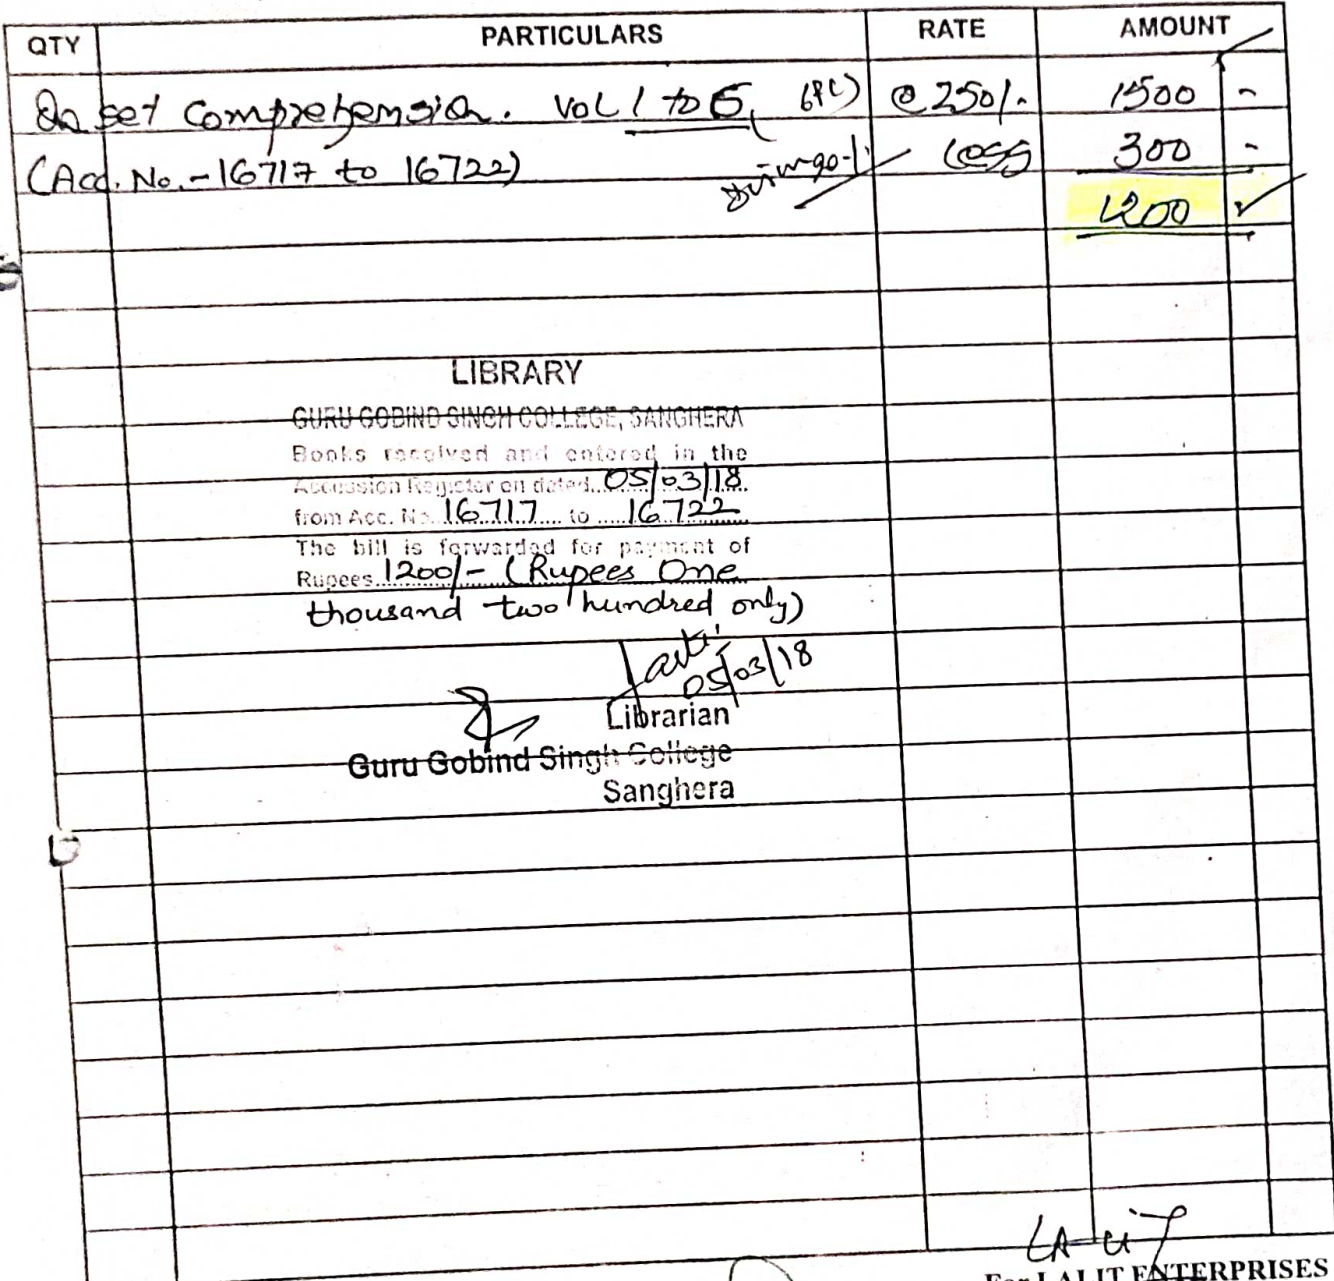 QTY PARTICULARS RATE AMOUNT
set Comprehension. Vol 1 to 6, @ 250/. 1500 -
(Acc. No.-16717 to 16722) Less 300 -
1200
LIBRARY
GURU GOBIND SINGH COLLEGE, SANGHERA
Books received and entered in the
Accession Register on dated. 05/03/18
from Acc. No. 16717 to 16722
The bill is forwarded for payment of
Rupees 1200/- (Rupees One
thousand two hundred only)
05/03/18
Librarian
Guru Gobind Singh College
Sanghera
LALIT
For LALIT ENTERPRISES